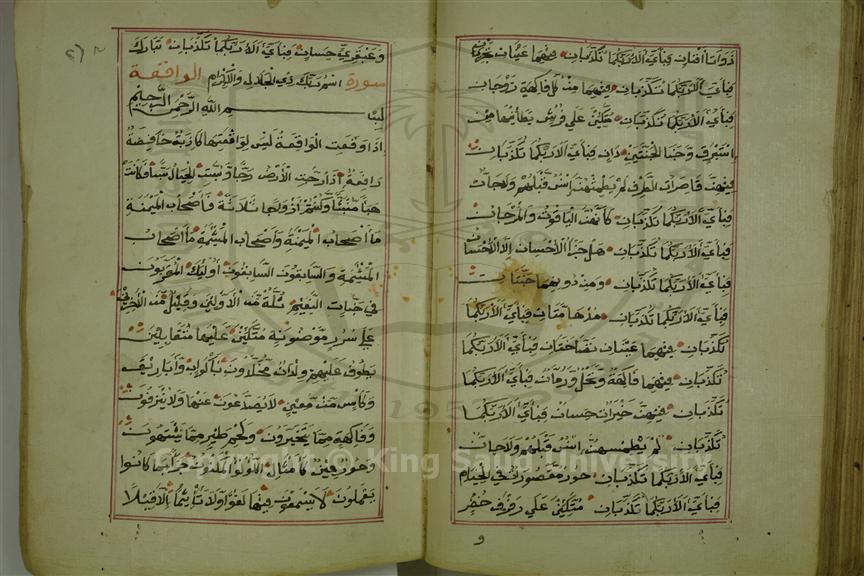 ذواتا افنان فبأي الاء ربكما تكذبان فيهما عينان تجريان
فبأي الاء ربكما تكذبان فيهما من كل فاكهة زوجان
فبأي الاء ربكما تكذبان متكئين علي فرش بطائنها من
استبرق وجنا الجنتين دان فبأي الاء ربكما تكذبان
فيهن قاصرات الطرف لم يطمثهن انس قبلهم ولا جان
فبأي الاء ربكما تكذبان كأنهن الياقوت والمرجان
فبأي الاء ربكما تكذبان هل جزا الاحسان الا الاحسان
فبأي الاء ربكما تكذبان ومن دونهما جنتان
فبأي الاء ربكما تكذبان مدهامتان فبأي الاء ربكما
تكذبان فيهما عينان نضاختان فبأي الاء ربكما
تكذبان فيهما فاكهة ونخل ورمان فبأي الاء ربكما
تكذبان فيهن خيرات حسان فبأي الاء ربكما
تكذبان لم يطمسهن انس قبلهم ولا جان
فبأي الاء ربكما تكذبان حور مقصورات في الخيام
فبأي الاء ربكما تكذبان متكئين علي رفرف خضر
و
وعبقري حسان فبأي الاء ربكما تكذبان تبارك
اسم ربك ذي الجلال والاكرام سورة الواقعة
بسم الله الرحمن الرحيم
اذا وقعت الواقعة ليس لوقعتها كاذبة خافضة
رافعة اذا رجت الارض رجا وبست الجبال بسا فكانت
هبا منبثا وكنتم ازواجا ثلاثة فأصحاب الميمنة
ما اصحاب الميمنة وأصحاب المشئمة ما أصحاب
المشئمة والسابقون السابقون أولئك المقربون
في جنات النعيم ثلة من الاولين وقليل من الاخرين
علي سرر موضونة متكئين عليها متقابلين
يطوف عليهم ولدان مخلدون بأكواب وأباريق
وكأس من معين لا يصدعون عنها ولا ينزفون
وفاكهة مما يتخيرون ولحم طير مما يشتهون
وحور عين كأمثال اللؤلؤ المكنون جزاء بما كانوا
يعملون لا يسمعون فيها لغوا ولا تأثيما الا قيلا
Copyright © King Saud University
1957